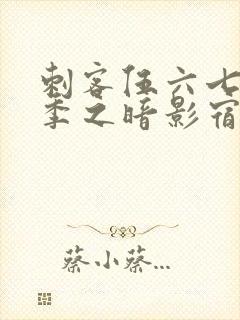 刺客伍六七
季之暗影宿
蔡小蔡...